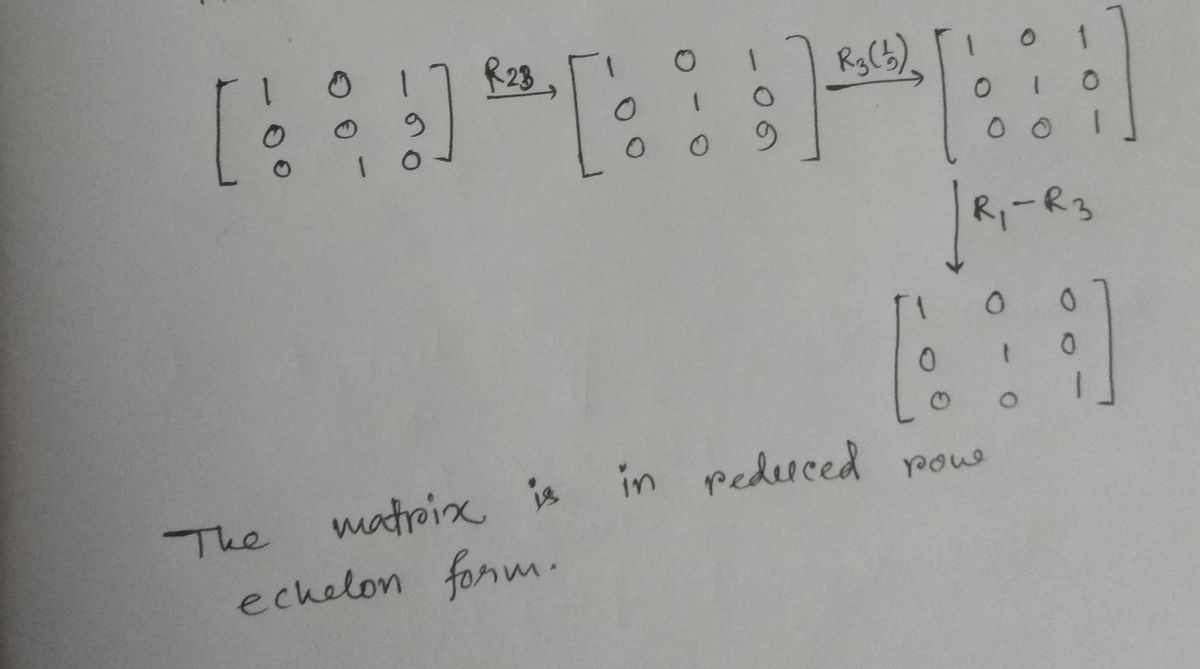 [1 0 1] R23 → [1 0 1] R3(1/9) → [1 0 1]
[0 0 9] [0 1 0] [0 1 0]
[0 1 0] [0 0 9] [0 0 1]
↓ R1-R3
[1 0 0]
[0 1 0]
[0 0 1]
The matrix is in reduced row
echelon form.